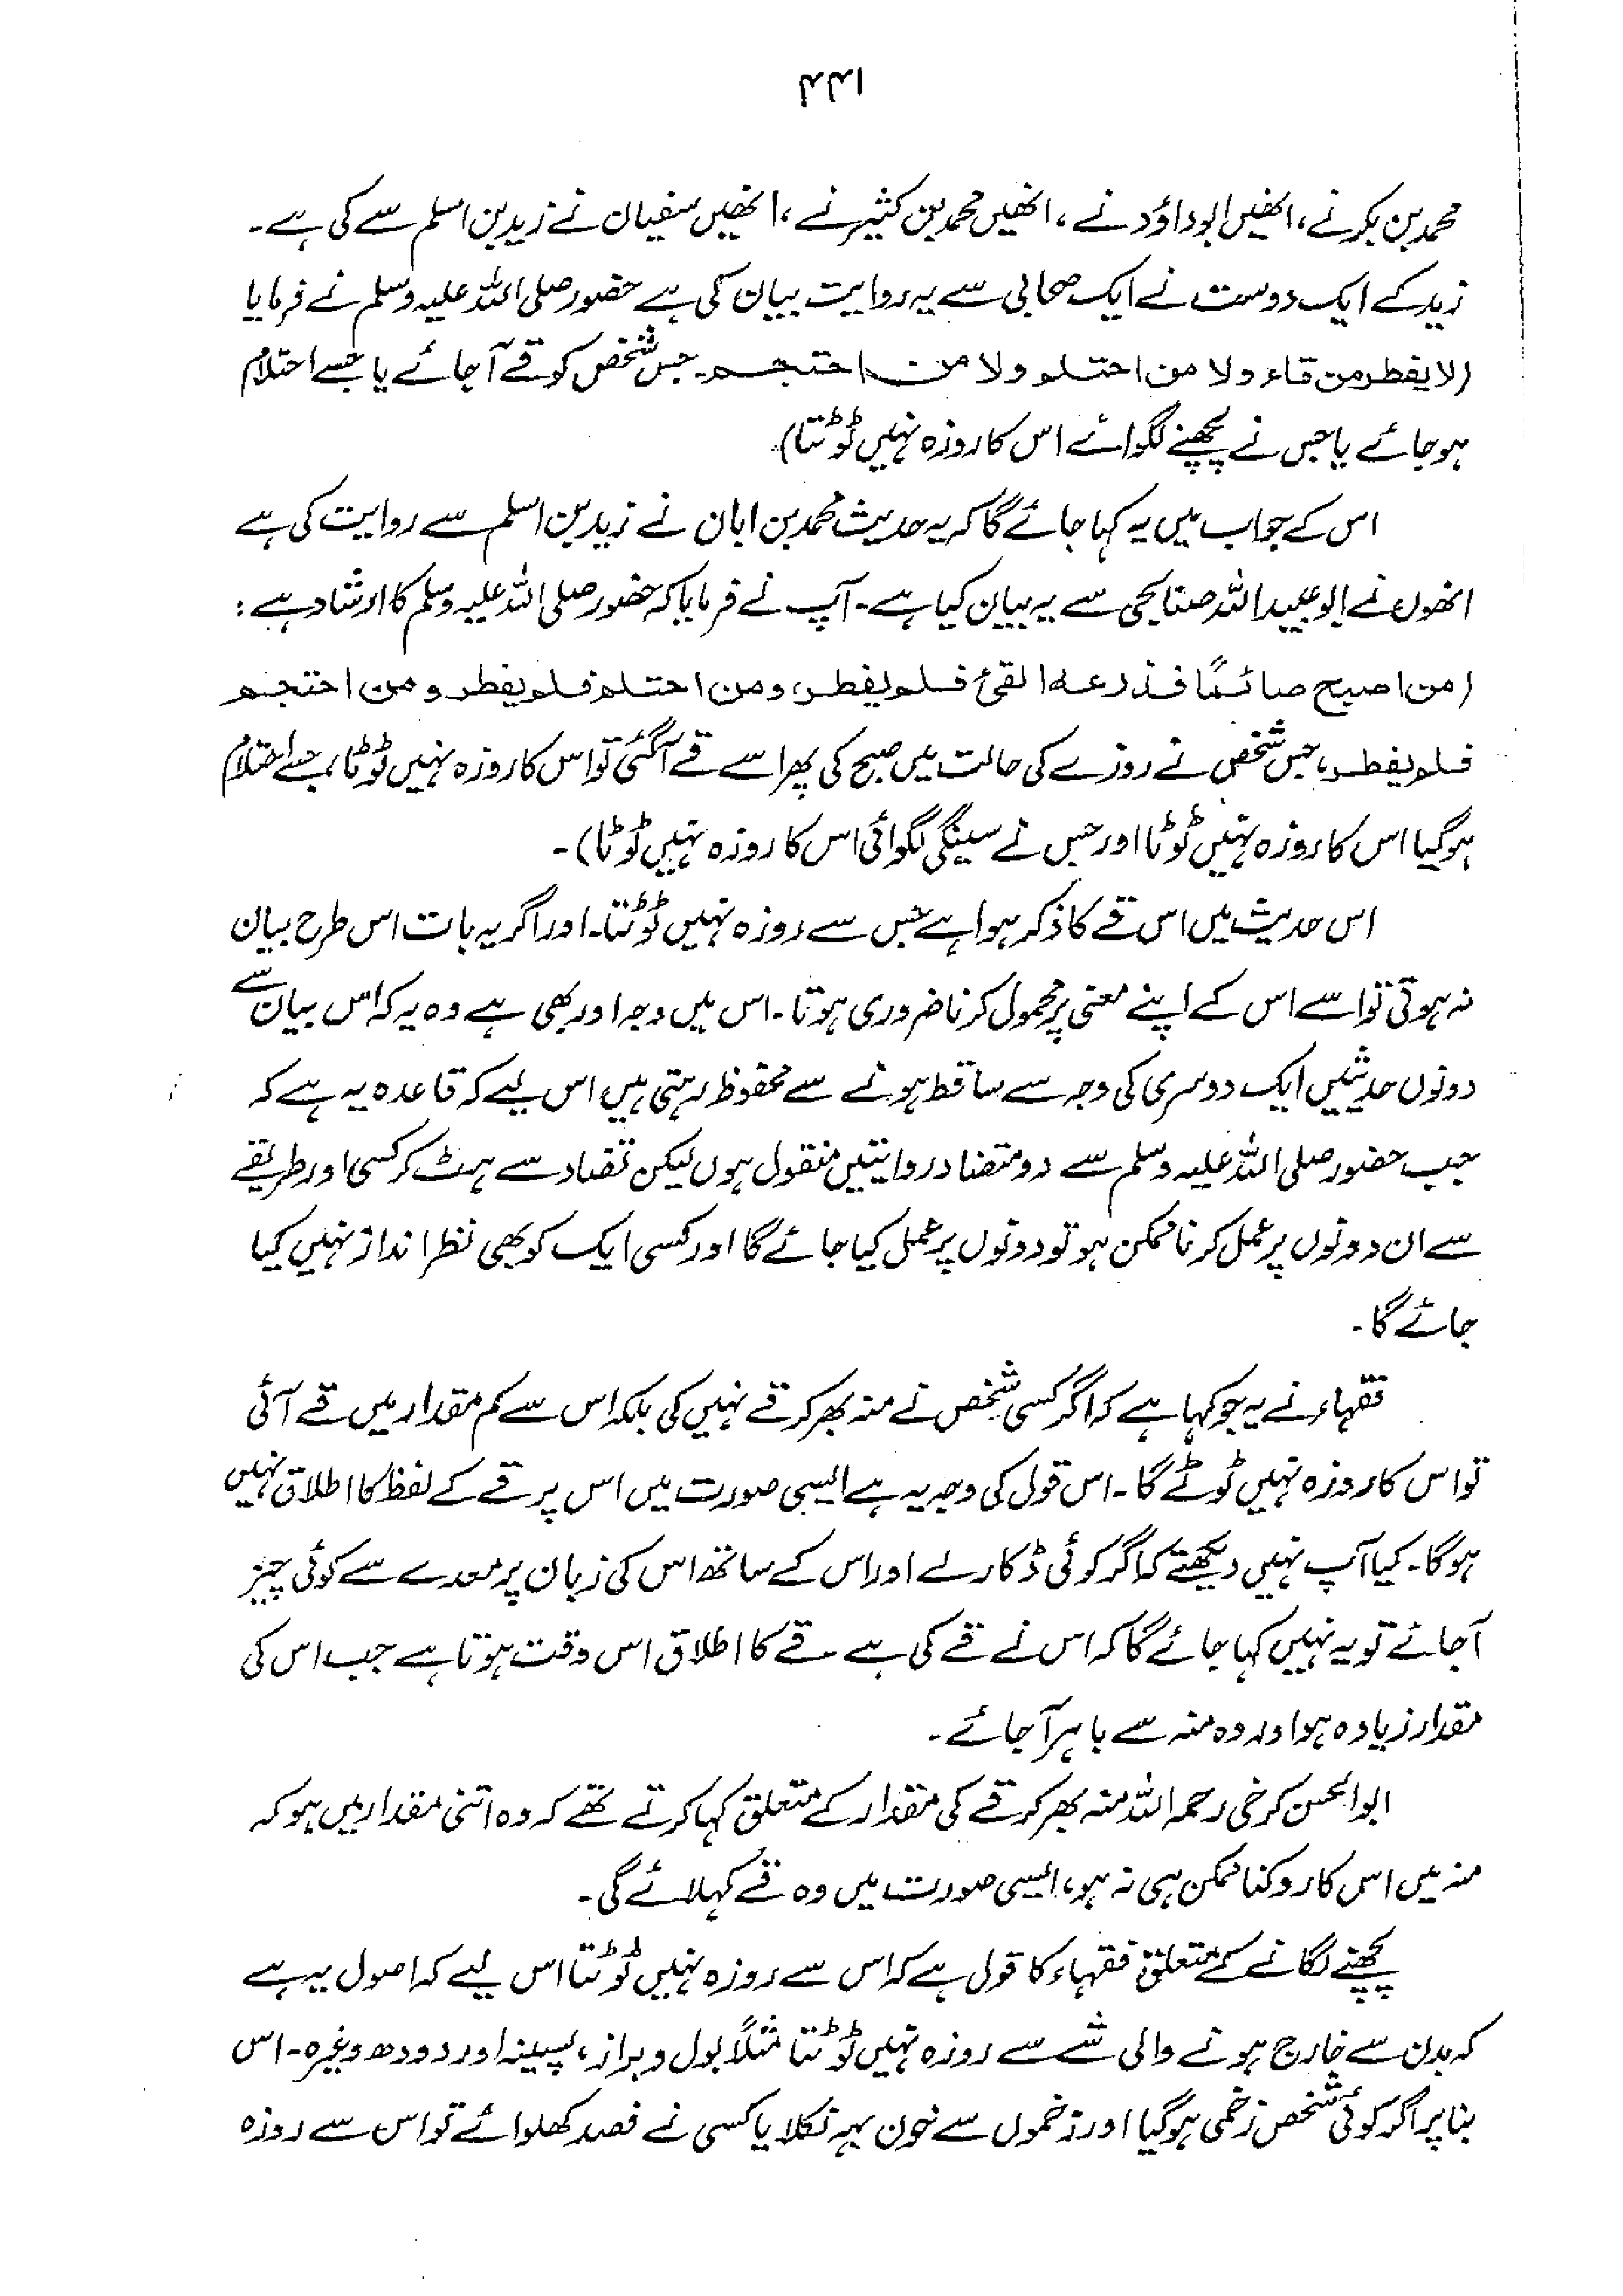 ۴۴۱
محمد بن بکر نے، انھیں ابوداؤد نے، انھیں محمد بن کثیر نے، انھیں سفیان نے زید بن اسلم سے کی ہے۔
زید کے ایک دوست نے ایک صحابی سے یہ روایت بیان کی ہے حضور صلی اللہ علیہ وسلم نے فرمایا
(لا یفطر من قاء ولا من احتلم ولا من احتجم۔ جس شخص کو قے آجائے یا جسے احتلام
ہوجائے یا جس نے پچھنے لگوائے اس کا روزہ نہیں ٹوٹتا)
اس کے جواب میں یہ کہا جائے گا کہ یہ حدیث محمد بن ابان نے زید بن اسلم سے روایت کی ہے
انھوں نے ابوعبید اللہ صنابحی سے یہ بیان کیا ہے۔ آپ نے فرمایا کہ حضور صلی اللہ علیہ وسلم کا ارشاد ہے:
(من اصبح صائمًا فذرعہ القئ فلم یفطر، ومن احتلم فلم یفطر ومن احتجم
فلم یفطر، جس شخص نے روزے کی حالت میں صبح کی پھر اسے قے آگئی تو اس کا روزہ نہیں ٹوٹا، جسے احتلام
ہوگیا اس کا روزہ نہیں ٹوٹا اور جس نے سینگی لگوائی اس کا روزہ نہیں ٹوٹا)۔
اس حدیث میں اس قے کا ذکر ہوا ہے جس سے روزہ نہیں ٹوٹتا۔ اور اگر یہ بات اس طرح بیان
نہ ہوتی تو اسے اس کے اپنے معنی پر محمول کرنا ضروری ہوتا۔ اس میں وجہ اور بھی ہے وہ یہ کہ اس بیان سے
دونوں حدیثیں ایک دوسری کی وجہ سے ساقط ہونے سے محفوظ رہتی ہیں اس لیے کہ قاعدہ یہ ہے کہ
جب حضور صلی اللہ علیہ وسلم سے دو متضاد روایتیں منقول ہوں لیکن تضاد سے ہٹ کر کسی اور طریقے
سے ان دونوں پر عمل کرنا ممکن ہو تو دونوں پر عمل کیا جائے گا اور کسی ایک کو بھی نظر انداز نہیں کیا
جائے گا۔
فقہاء نے یہ جو کہا ہے کہ اگر کسی شخص نے منہ بھر کر قے نہیں کی بلکہ اس سے کم مقدار میں قے آئی
تو اس کا روزہ نہیں ٹوٹے گا۔ اس قول کی وجہ یہ ہے ایسی صورت میں اس پر قے کے لفظ کا اطلاق نہیں
ہوگا۔ کیا آپ نہیں دیکھتے کہ اگر کوئی ڈکار لے اور اس کے ساتھ اس کی زبان پر معدے سے کوئی چیز
آجائے تو یہ نہیں کہا جائے گا کہ اس نے قے کی ہے۔ قے کا اطلاق اس وقت ہوتا ہے جب اس کی
مقدار زیادہ ہو اور وہ منہ سے باہر آجائے۔
ابوالحسن کرخی رحمہ اللہ منہ بھر کر قے کی مقدار کے متعلق کہا کرتے تھے کہ وہ اتنی مقدار میں ہو کہ
منہ میں اس کا روکنا ممکن ہی نہ ہو، ایسی صورت میں وہ قے کہلائے گی۔
پچھنے لگانے کے متعلق فقہاء کا قول ہے کہ اس سے روزہ نہیں ٹوٹتا اس لیے کہ اصول یہ ہے
کہ بدن سے خارج ہونے والی شے سے روزہ نہیں ٹوٹتا مثلاً بول و براز، پسینہ اور دودھ وغیرہ۔ اس
بنا پر اگر کوئی شخص زخمی ہوگیا اور زخموں سے خون بہہ نکلا یا کسی نے فصد کھلوائے تو اس سے روزہ